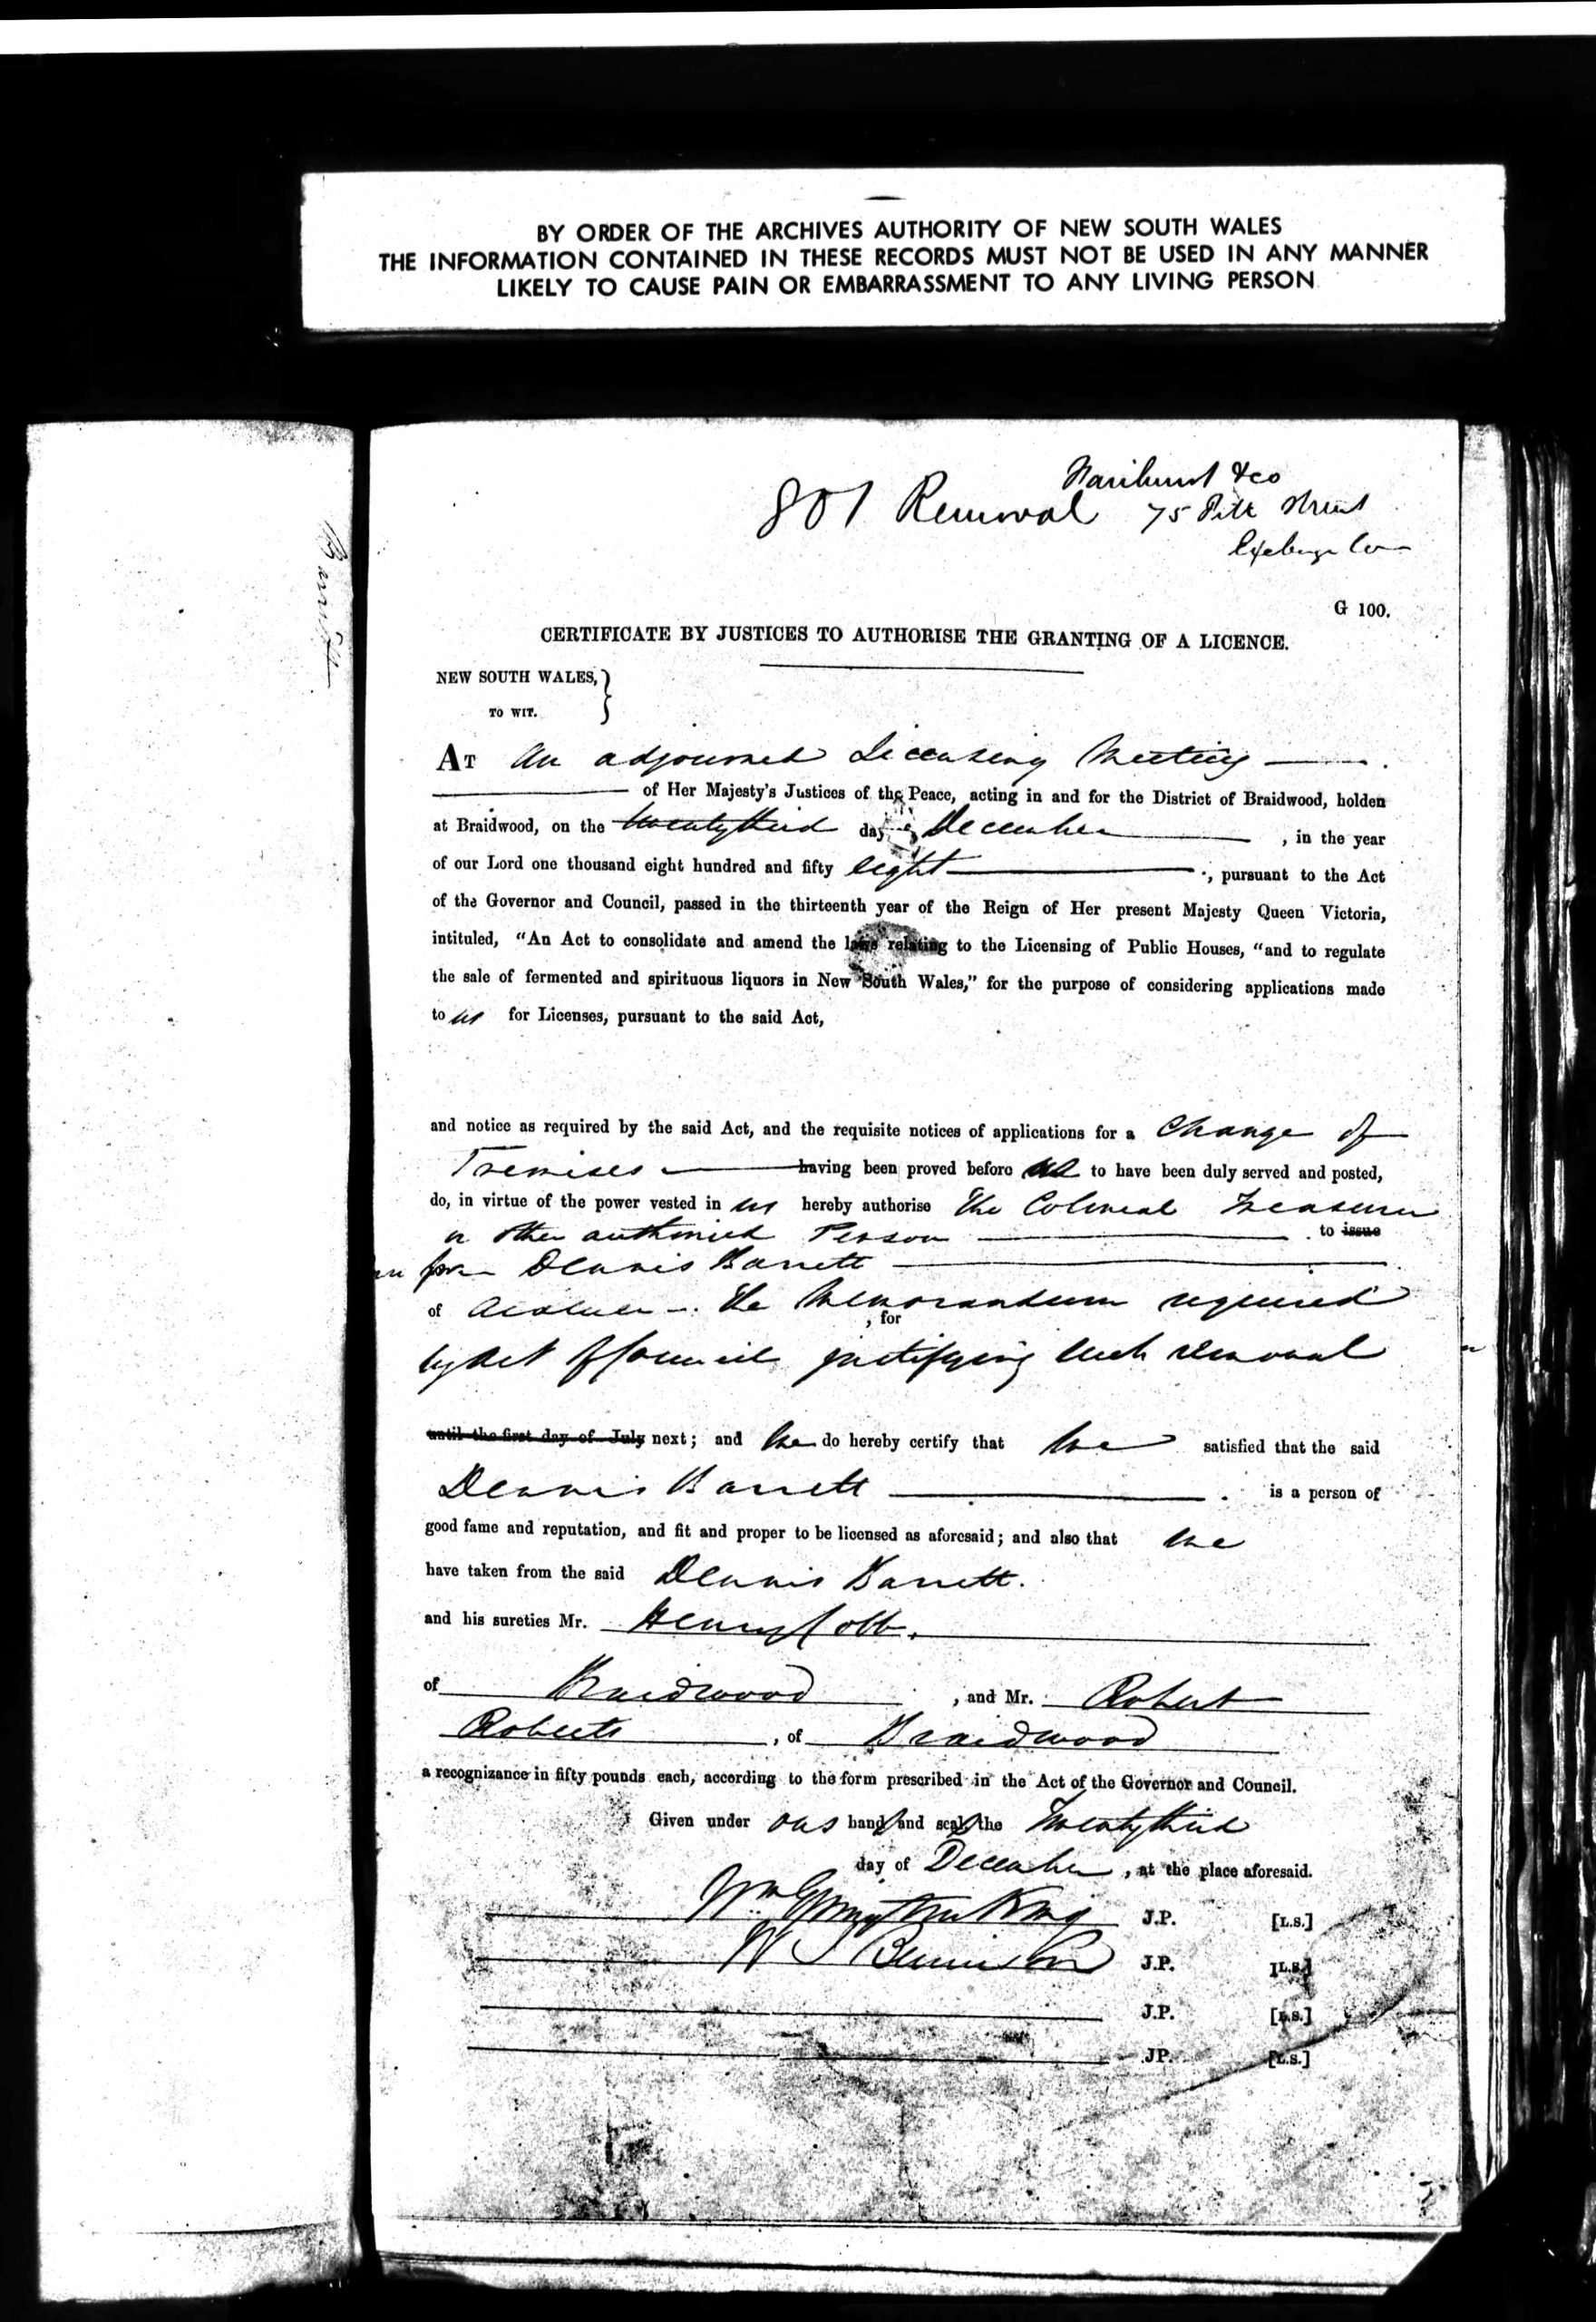 BY ORDER OF THE ARCHIVES AUTHORITY OF NEW SOUTH WALES
THE INFORMATION CONTAINED IN THESE RECORDS MUST NOT BE USED IN ANY MANNER
LIKELY TO CAUSE PAIN OR EMBARRASSMENT TO ANY LIVING PERSON
& co
801 Removal 75 Pitt Street
G 100.
CERTIFICATE BY JUSTICES TO AUTHORISE THE GRANTING OF A LICENCE.
NEW SOUTH WALES,}
TO WIT.
AT An adjourned Licensing Meeting
of Her Majesty's Justices of the Peace, acting in and for the District of Braidwood, holden
at Braidwood, on the twentythird day of December, in the year
of our Lord one thousand eight hundred and fifty eight, pursuant to the Act
of the Governor and Council, passed in the thirteenth year of the Reign of Her present Majesty Queen Victoria,
intituled, "An Act to consolidate and amend the laws relating to the Licensing of Public Houses, "and to regulate
the sale of fermented and spirituous liquors in New South Wales," for the purpose of considering applications made
to us for Licenses, pursuant to the said Act,
and notice as required by the said Act, and the requisite notices of applications for a Change of
Premises having been proved before us to have been duly served and posted,
do, in virtue of the power vested in us hereby authorise The Colonial Treasurer
or other authorised Person to issue
Dennis Barrett
of the Memorandum required
, for
by Act of Council justifying such removal
until the first day of July next; and we do hereby certify that we satisfied that the said
Dennis Barrett is a person of
good fame and reputation, and fit and proper to be licensed as aforesaid; and also that we
have taken from the said Dennis Barrett.
and his sureties Mr. Henry Cobb.
of Braidwood, and Mr. Robert
Roberts, of Braidwood
a recognizance in fifty pounds each, according to the form prescribed in the Act of the Governor and Council.
Given under our hand and seal the Twentythird
day of December, at the place aforesaid.
J.P. [L.S.]
J.P. [L.S.]
J.P. [L.S.]
J.P. [L.S.]